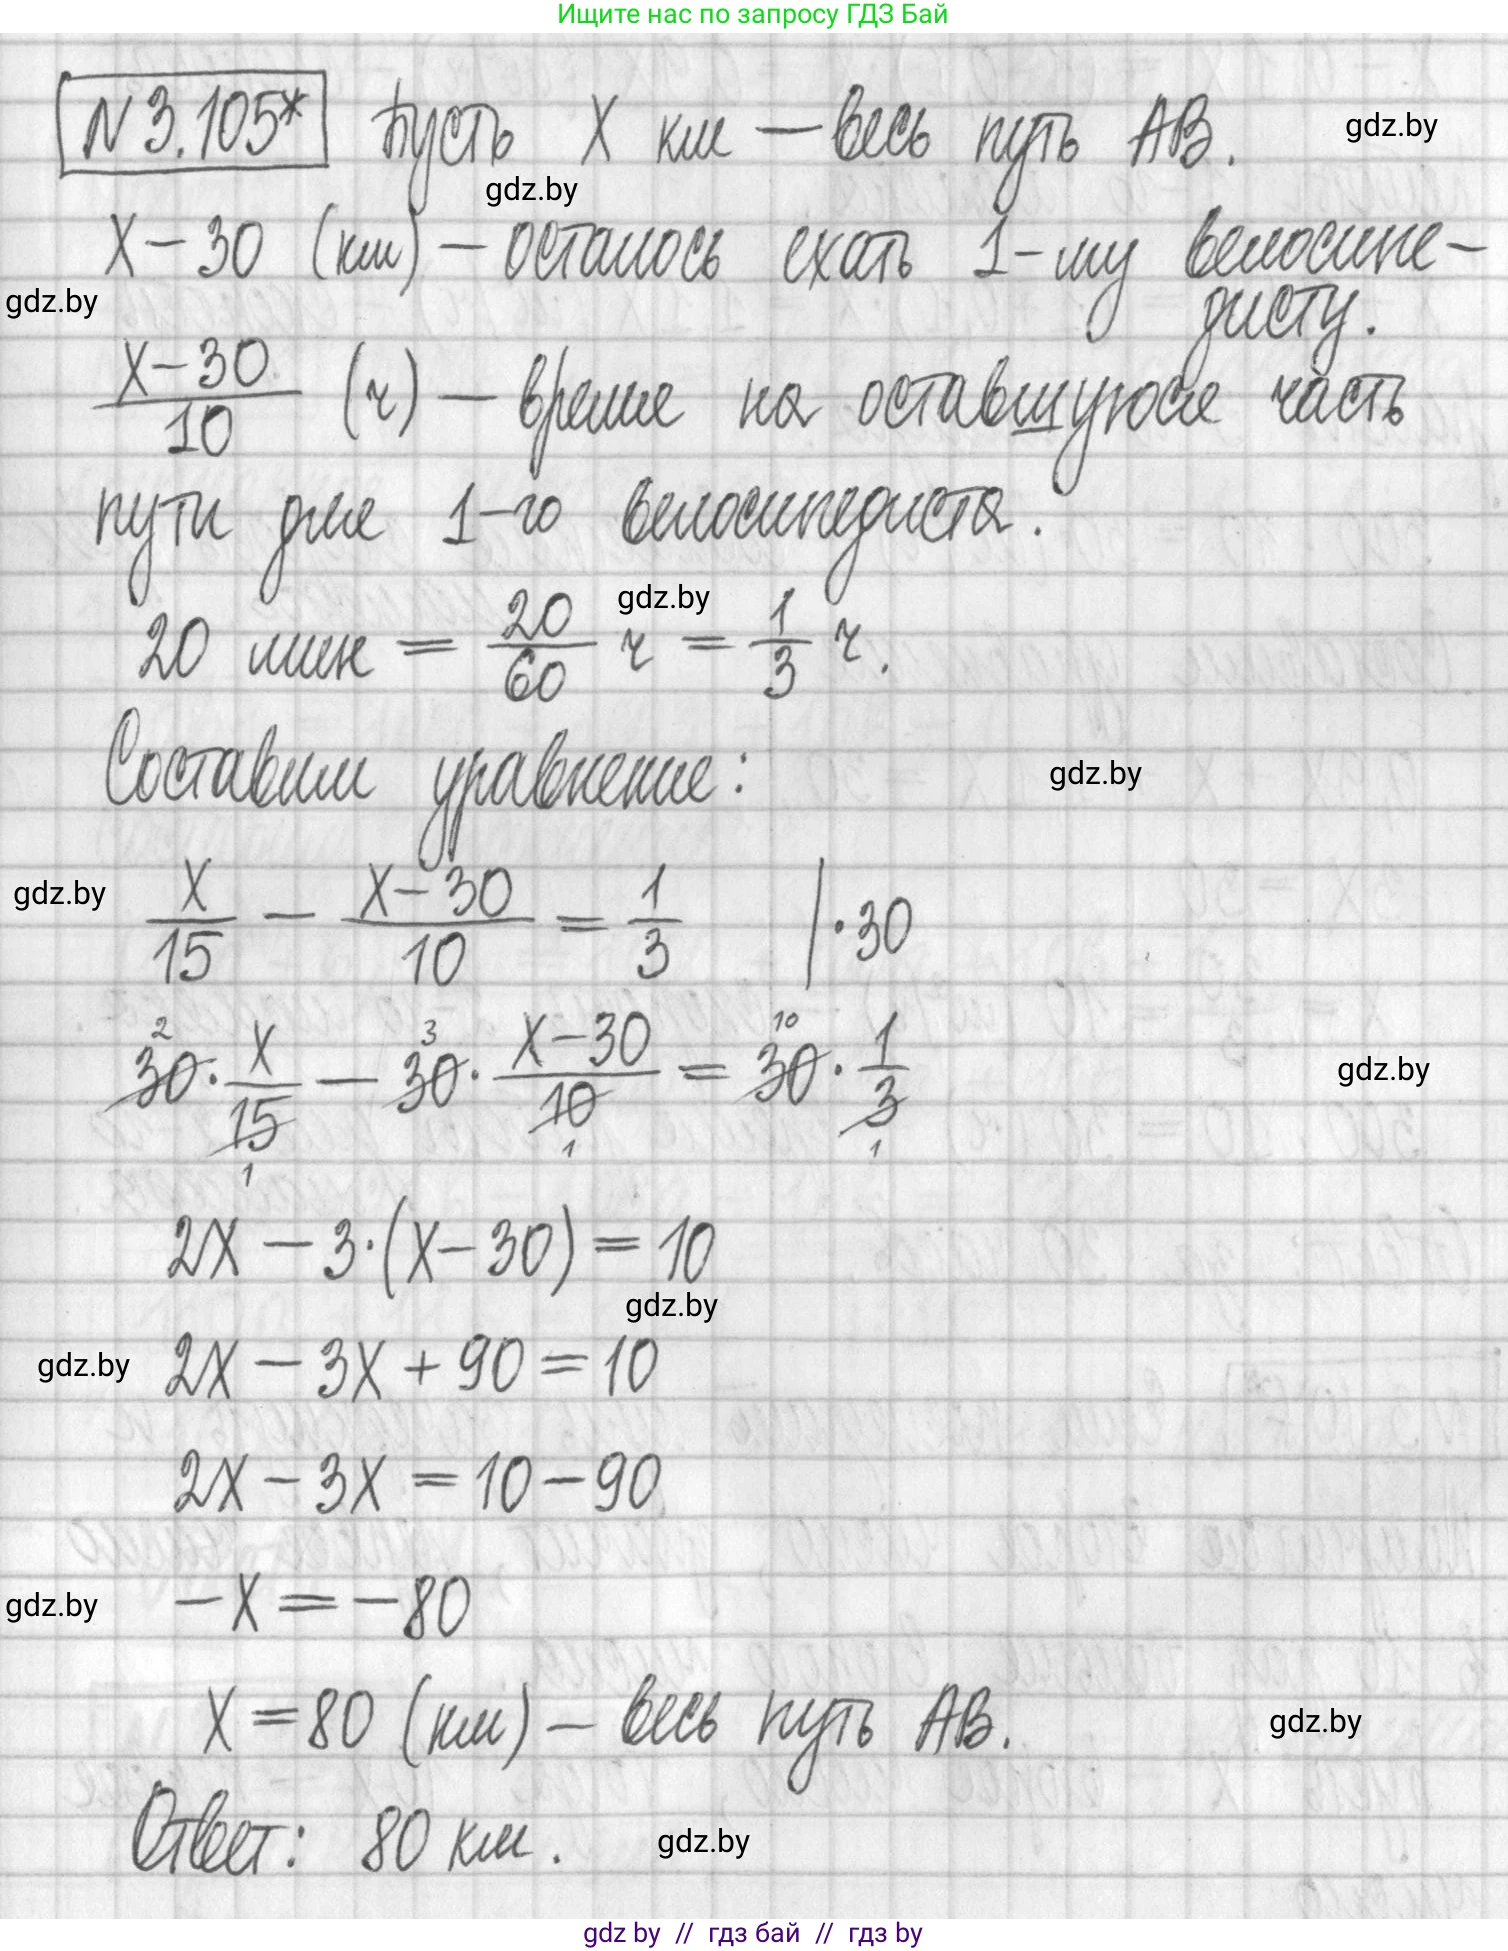 Ищите нас по запросу ГДЗ Бай
N 3.105* Пусть X км — весь путь AB.
gdz.by
gdz.by
X − 30 (км) — осталось ехать 1-му велосипе-
дисту.
gdz.by
X−30/10 (ч) — время на оставшуюся часть
пути для 1-го велосипедиста.
gdz.by
20 мин = 20/60 ч = 1/3 ч.
Составим уравнение:
gdz.by
gdz.by
X/15 − X−30/10 = 1/3 | ·30
30 2 · X/15 1 − 30 3 · X−30/10 1 = 30 10 · 1/3 1
gdz.by
2X − 3·(X−30) = 10
gdz.by
gdz.by
2X − 3X + 90 = 10
2X − 3X = 10 − 90
gdz.by
−X = −80
X = 80 (км) — весь путь AB.
gdz.by
Ответ: 80 км.
gdz.by
gdz by // гдз бай // гдз by